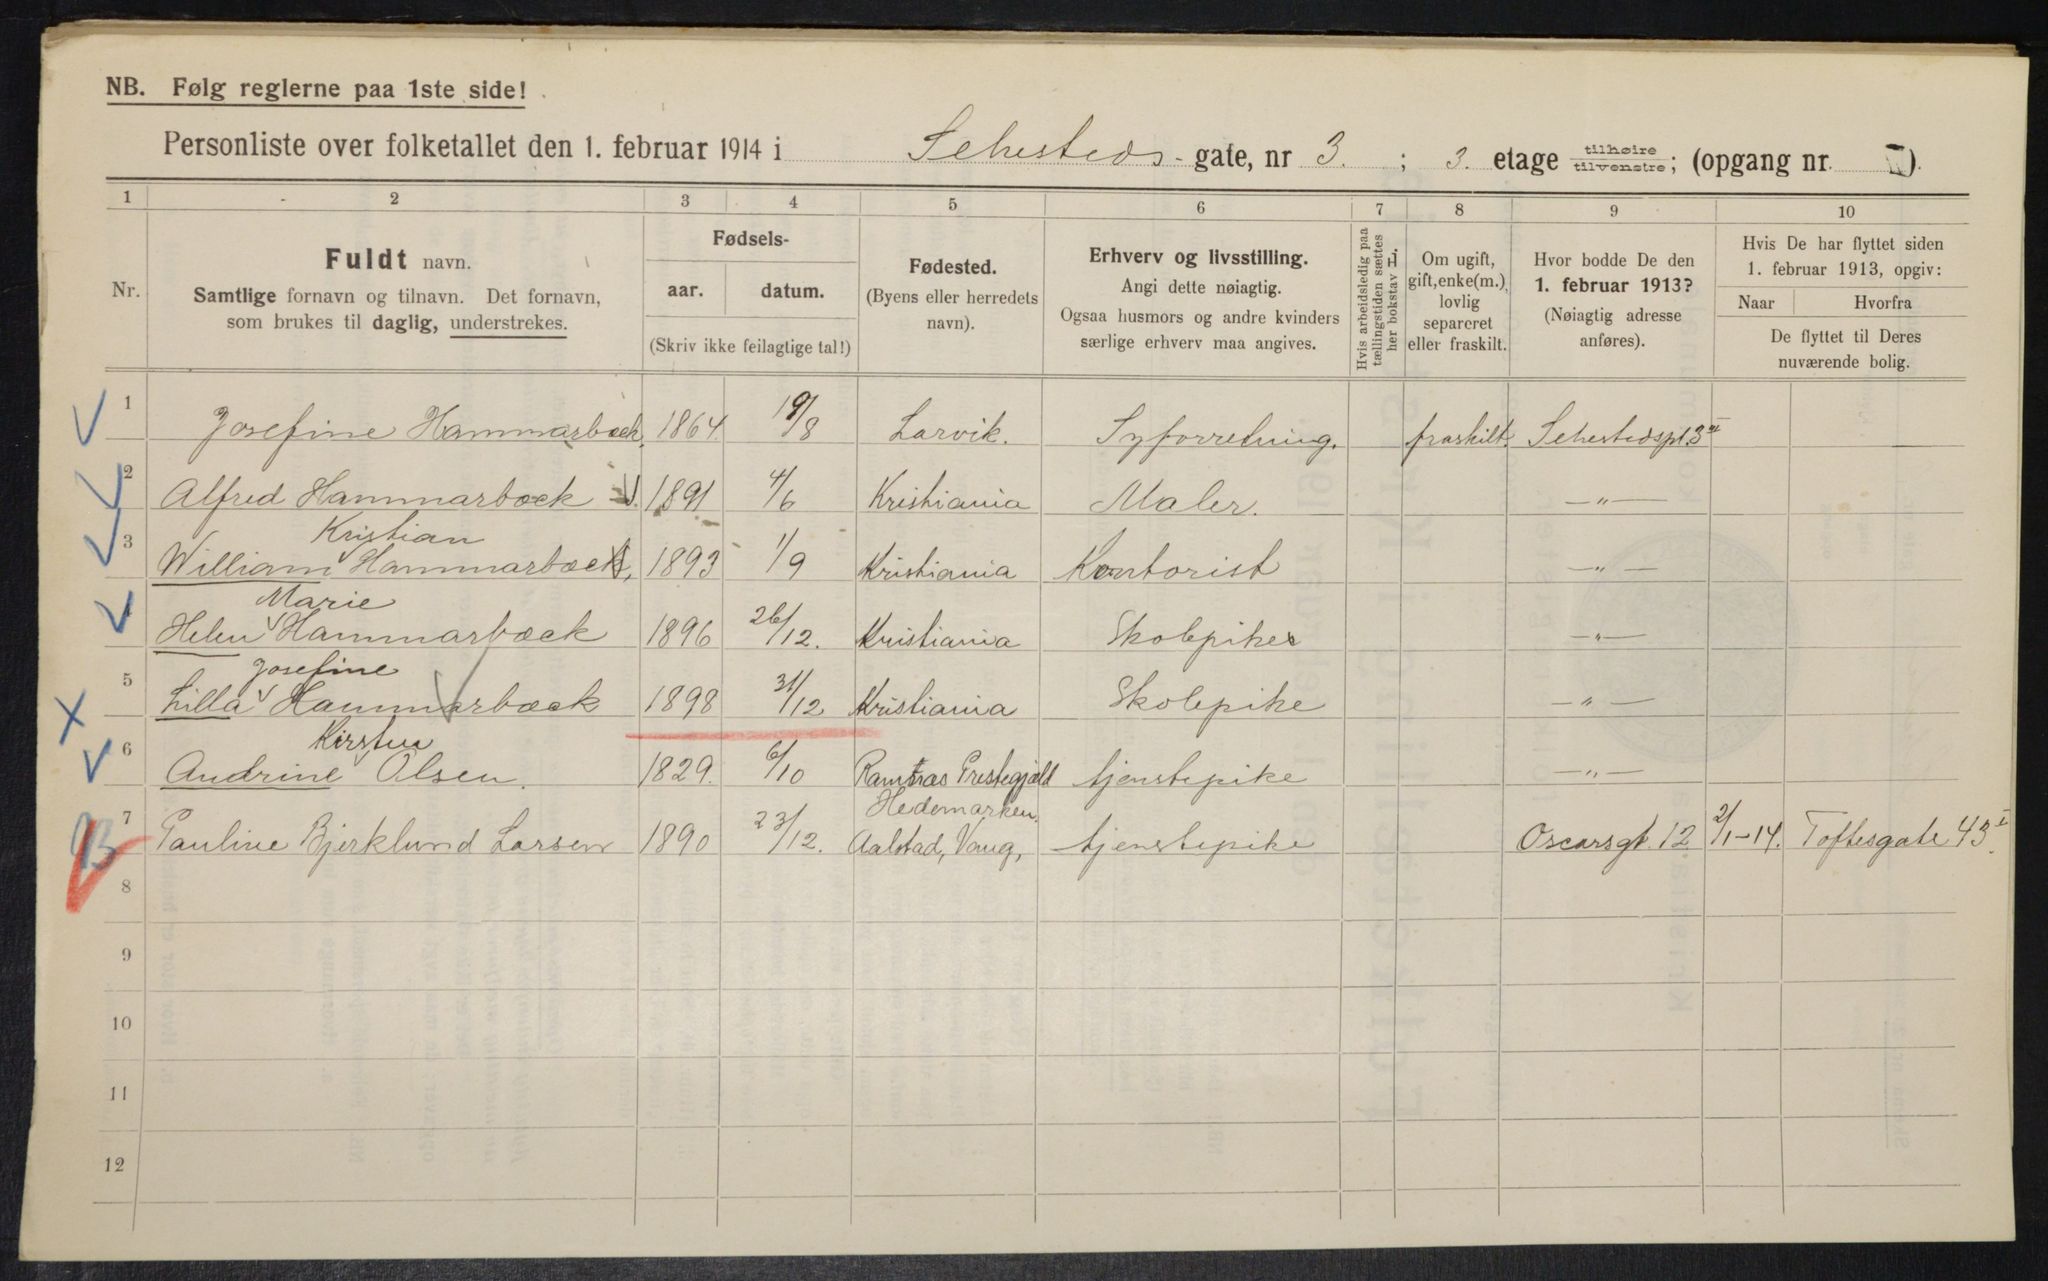 NB. Følg reglerne paa 1ste side!
Personliste over folketallet den 1. februar 1914 i Sehesteds - gate, nr 3. ; 3. etage tilhøire/tilvenstre; (opgang nr. ).
1 2 3 4 5 6 7 8 9 10
Nr.
Fuldt navn.
Samtlige fornavn og tilnavn. Det fornavn,
som brukes til daglig, understrekes.
Fødsels-
aar. datum.
(Skriv ikke feilagtige tal!)
Fødested.
(Byens eller herredets
navn).
Erhverv og livsstilling.
Angi dette nøiagtig.
Ogsaa husmors og andre kvinders
særlige erhverv maa angives.
Hvis arbeidsledig paa
tællingstiden sættes
her bokstav L.
Om ugift,
gift, enke(m.),
lovlig
separeret
eller fraskilt.
Hvor bodde De den
1. februar 1913?
(Nøiagtig adresse
anføres).
Hvis De har flyttet siden
1. februar 1913, opgiv:
Naar Hvorfra
De flyttet til Deres
nuværende bolig.
1 Josefine Hammarbæck, 1864. 19/8 Larvik. Syforretning. fraskilt. Sehestedspl. 3 III
2 Alfred Hammarbæck 1891 4/6 Kristiania Maler. —"—
Kristian
3 William Hammarbæck, 1893 1/9 Kristiania Kontorist —"—
Marie
4 Helen Hammarbæck 1896 26/12. Kristiania Skolepike —"—
Josefine
5 Lilla Hammarbæck 1898 31/12 Kristiania Skolepike —"—
Kirstue
6 Andrine Olsen. 1829. 6/10 Ramnæs Prestegjæld tjenstepike —"—
Hedemarken.
7 Pauline Bjerklund Larsen 1890 23/12. Aalstad, Vang, tjenstepike Oscarsgt. 12 2/1-14. Toftesgate 43 I
8
9
10
11
12